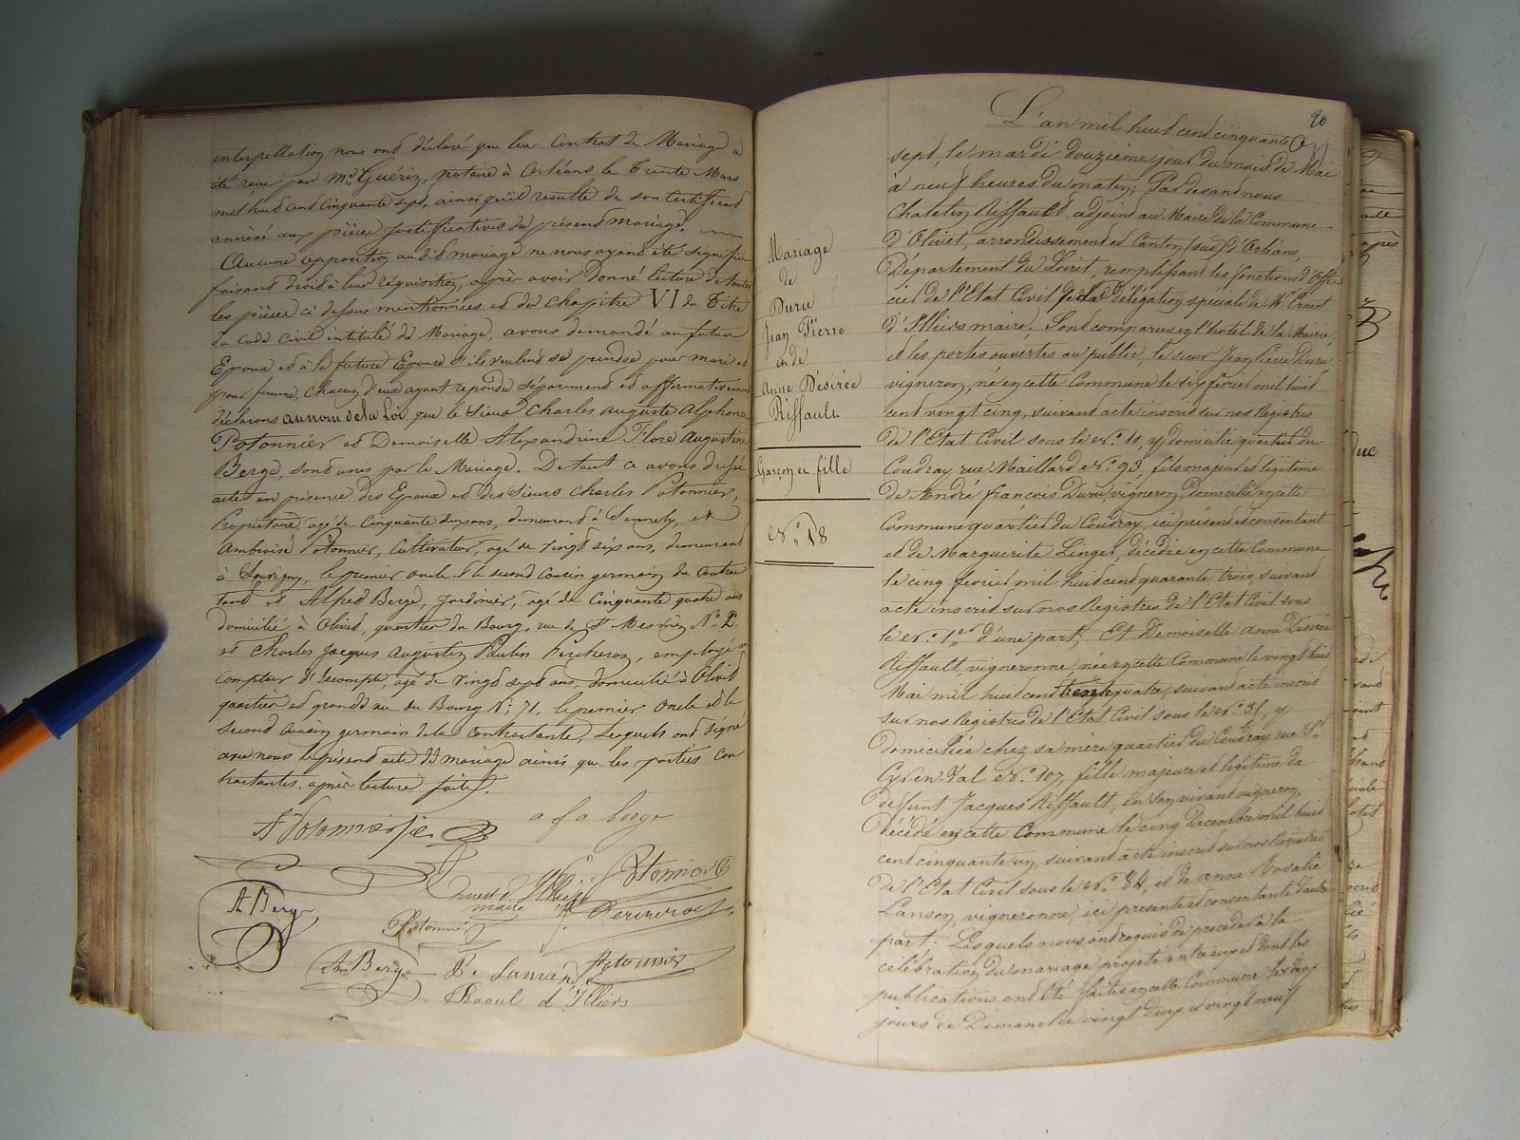 interpellation nous ont déclaré que leur Contrat de Mariage a
été reçu par Me Guérin, notaire à Orléans le Trente Mars
mil huit cent Cinquante Sept, ainsi qu'il résulte de son certificat
annexé aux pièces justificatives du présent mariage.
Aucune opposition audit mariage ne nous ayant été signifiée
faisant droit à leur réquisition, après avoir donné lecture de toutes
les pièces ci dessus mentionnées et du chapitre VI du Titre
du code civil intitulé du Mariage, avons demandé au futur
Epoux et à la future Epouse s'ils veulent se prendre pour mari et
pour femme, chacun d'eux ayant répondu séparément et affirmativement
déclarons au nom de la Loi que le Sieur Charles Auguste Alphonse
Potonnier et Demoiselle Alexandrine Flore Augustine
Bergé, sont unis par le Mariage. De tout ce avons dressé
acte en présence des Epoux et des Sieurs Charles Potonnier,
Propriétaire, agé de Cinquante deux ans, demeurant à Sennely, et
Ambroise Potonnier, Cultivateur, agé de vingt six ans, demeurant
à Souvigny, le premier oncle et le second Cousin germain du Contrac
tant et Alfred Bergé, Jardinier, agé de Cinquante quatre ans
domicilié à Olivet, quartier du Bourg, rue de St Mesmin No 2
et Charles Jacques Augustin Paulin Fercheron, employé au
Comptoir d'Escompte, agé de vingt sept ans, domicilié à Olivet
quartier et grande rue du Bourg No 71, le premier Oncle et le
Second Cousin germain de la Contractante, Lesquels ont signé
avec nous le présent acte de mariage ainsi que les parties Con
tractantes, après lecture faite.
A Potonnier
a f a berge
Ernest d'Illiers Potonnier
maire
A Bergé
Potonnier
Bergé
Potonnier
Raoul d'Illiers
90
L'an mil huit cent cinquante
sept, le mardi douzième jour du mois de Mai
à neuf heures du matin; Par devant nous
Riffault, adjoint au Maire de la Commune
d'Olivet, arrondissement et Canton (sud) d'Orléans,
Département du Loiret, remplissant les fonctions d'Offi
cier de l'Etat Civil par délégation spéciale de Mr Ernest
d'Illiers maire, Sont comparus en l'hotel de la Mairie,
et les portes ouvertes au public, le sieur Jean Pierre Duru
vigneron, né en cette Commune le six février mil huit
cent vingt cinq, suivant acte inscrit sur nos Registres
de l'Etat Civil sous le No 10, y domicilié quartier du
Coudray rue Maillard No 93, fils majeur et légitime
de André françois Duru, vigneron, domicilié en cette
Commune quartier du Coudray, ici présent et consentant
et de Marguerite Linger, décédée en cette Commune
le cinq février mil huit cent quarante trois, suivant
acte inscrit sur nos Registres de l'Etat Civil sous
le No 1er d'une part; Et Demoiselle Anne Désirée
Riffault, vigneronne, née en cette Commune le vingt huit
Mai mil huit cent trente quatre, suivant acte inscrit
sur nos Registres de l'Etat Civil sous le No 31, y
domiciliée chez sa mère quartier du Coudray rue St
Cyr en Val No 107, fille majeure et légitime de
défunt Jacques Riffault, en son vivant vigneron,
décédé en cette Commune le cinq Décembre mil huit
cent cinquante un, suivant acte inscrit sur nos Registres
de l'Etat Civil sous le No 84, et de Anne Rosalie
Lanson, vigneronne, ici présente et consentante d'autre
part. Lesquels nous ont requis de procéder à la
célébration du mariage projeté entre eux et dont les
publications ont été faites en cette Commune
jours de Dimanche vingt deux et vingt neuf
Mariage
de
Duru
Jean Pierre
et de
Anne Désirée
Riffault
Garçon et fille
No 18